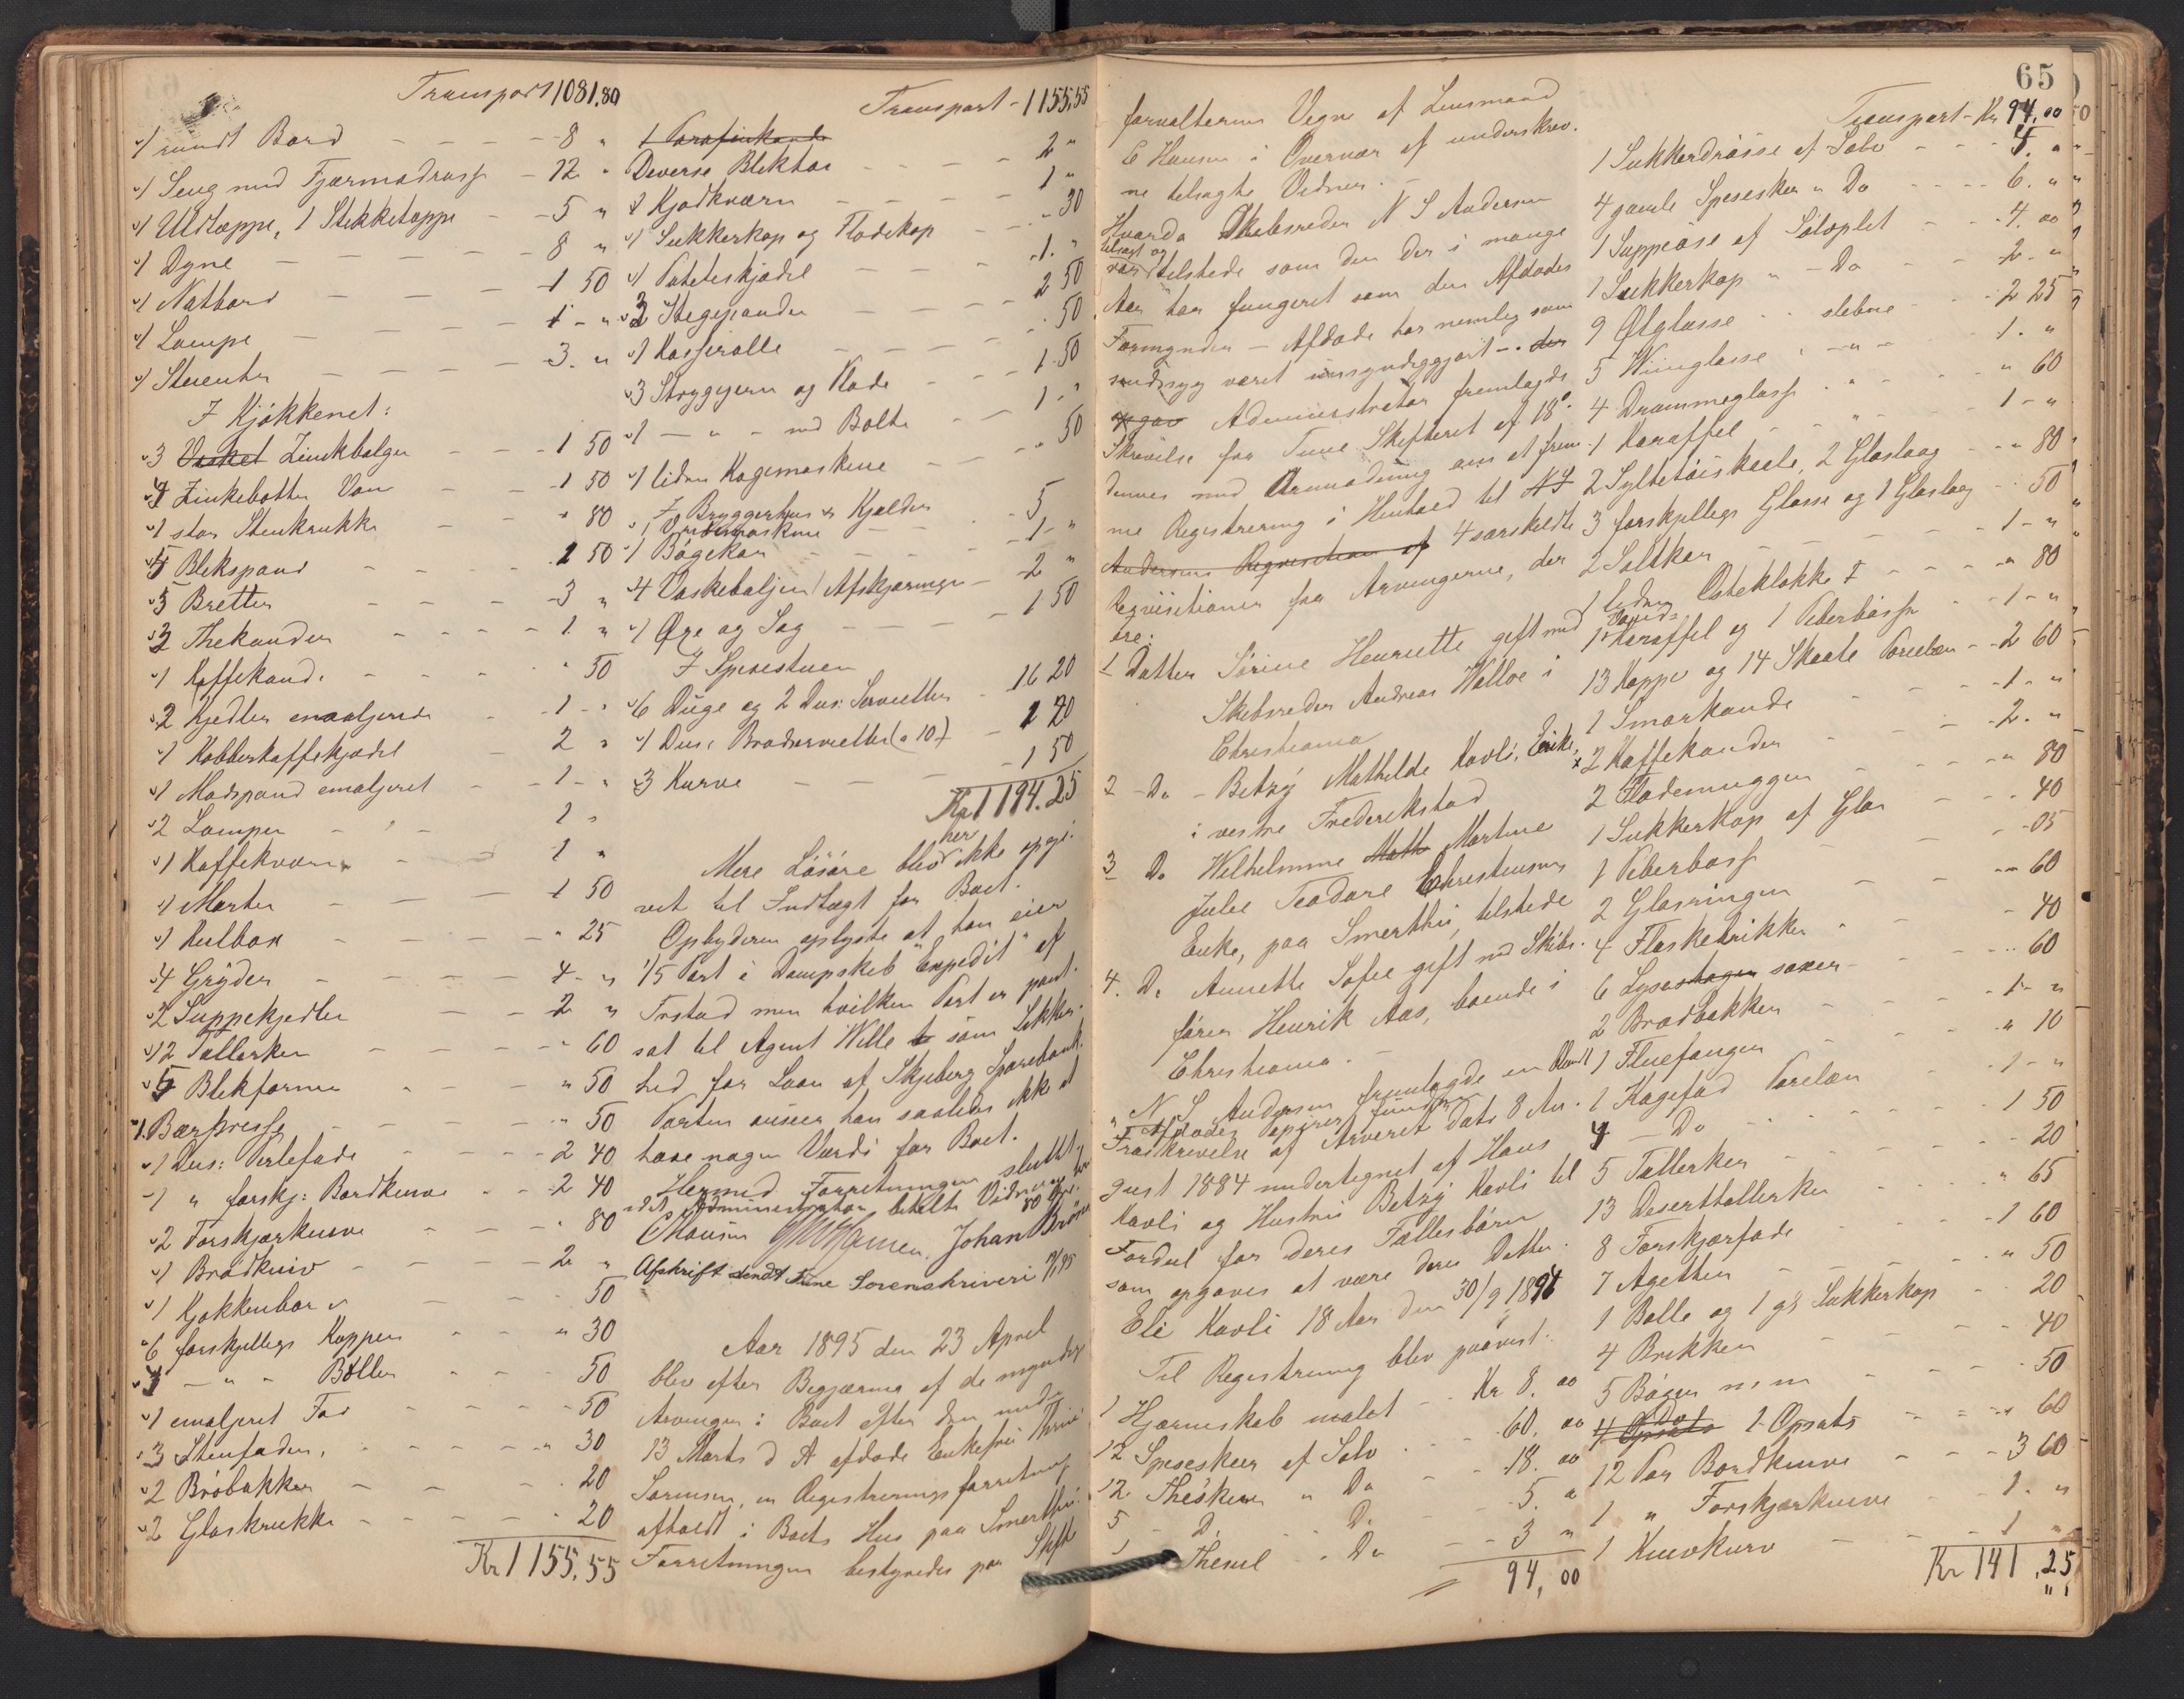 Transport 1081.80
1 rundt Bord - 8 "
1 Seng med Fjærmadrass - 12 "
1 Uldtæppe, 1 Stikketæppe - 5 "
1 Dyne - 8 "
1 Natbord - 1 50
1 Lampe - 1 - "
1 Stuentur - 3. "
I Kjökkenet:
3 Zinkbalger - 1 50
4 Zinkebötter Van - 1 50
1 stor Stenkrukke - " 80
5 Blikspand - 1 50
5 Bretter - 3 "
3 Thekander - 1 "
1 Kaffekand. - " 50
2 Kjedler emaljerede - 1 - "
1 Kobberkaffekjedel - 2 "
1 Madspand emaljeret - 1 - "
2 Lamper - 1 "
1 Kaffekværn - 1 "
1 Morter - 1 50
1 Kulbox - " 25
4 Gryder - 4 - "
2 Suppekjedler - 2 "
12 Tallerker - " 60
5 Blikformer - " 50
1 Bærpresse - " 50
1 Dus: Perlefade - 2 40
1 " forskj: Bordknive - 2 40
2 Forskjærknive - " 80
1 Brödkniv - 2 "
1 Kjökkenbor - 50
6 forskjellige Kopper - " 30
7 - " - Boller - 50
1 emaljeret Fad - 50
3 Stenfader, - " 30
2 Bröbakker - 20
2 Glaskrukke - 20
Kr 1155.55
Transport - 1155.55
1 Parafinkande
Diverse Bliktøi - 2 "
1 Kjödkværn - 1 "
1 Sukkerkop og Flödekop - 30
1 Poteteskjedel - 1. "
3 Stegepander - 2 50
1 Kasserolle - 50
3 Strygejern og Klode - 1 50
1 - " - med Bolte - 1 - "
1 liden Kogemaskine - " 50
I Bryggerhus og Kjelder
1 Vridemaskine - 5
1 Bögekar - 1 - "
4 Vaskebaljer (Afskjæringe - 2 "
1 Øxe og Sag - 1 50
I Spisestuen
6 Duge og 2 Dus: Servietter - 16 20
1 Dus. Brödservietter (a 10) - 1 20
3 Kurve - 1 50
Kr 1194.25
Mere Lösöre blev her ikke opgi-
vet til Indtægt for Boet.
Opbyderen oplyste at han eier
1/5 Part i Dampskib "Expedit" af
Frstad men hvilken Part er pant-
sat til Agent Wille som Sikker-
hed for Laan af Skjeberg Sparebank.
Parten anseer han saaledes ikke at
have nogen Værdi for Boet.
Hermed Forretningen sluttet.
Administrator betalte Vidnerne
80 Øre
C Hansen Johan
Afskrift sendt Tune Sorenskriveri
Aar 1895 den 23 April
blev efter Begjæring af de myndige
Arvinger i Boet efter den under
13 Marts d A afdøde Enkefru Thrine
Sörensen, en Registreringsforretning
afholdt i Boets Hus paa Smerthu.
Forretningen bestyredes paa Skifte
65
forvalterens Vegne af Lensmand
C Hansen i Overvær af underskrev-
ne tilsagte Vidner. -
Hvorda Skibsreder N S Andersen
tilsagt og
var tilstede som den der i mange
Aar har fungeret som den Afdödes
Formynder - Afdöde har nemlig som
sindssyg været umyndiggjort -. der
Administrator fremlagde
Skrivelse fra Tune Skifteret af 18'
dennes med Anmodning om at frem-
me Registrering i Henhold til
Andersens Reqvisition af 4 særskildte
Reqvisitioner fra Arvingerne, der
ere:
1 Datter Sirine Henriette gift med
Skibsreder Andreas Halloe i
Christiania
2 - Do - Betzy Mathilde Kavli, Enke,
i vestre Frederikstad
3 Do Wilhelmine Martine
Julie Teodore Christensen
Enke, paa Smerthu, tilstede
4. Do Annette Sofie gift med Skibs-
förer Henrik Aas, boende i
Christiania. -
N S Andersen fremlagde en blandt
Afdödes Papirer funden
Fraskrivelse af Arveret dat. 8 Au-
gust 1884 undertegnet af Hans
Kavli og Hustru Betzy Kavli til
Fordel for deres Fællesbörn
som opgaves at være deres Datter
Eli Kavli 18 Aar den 30/9 1894
Til Registrering blev paavist:
1 Hjörneskab malet - Kr 8. 00
12 Spiseskeer af Sölv - 60. 00
12 Theskeer " Do - 18. 00
5 - Do - Do - 5. "
1 Thesil - Do - 3 "
94,00
Transport - Kr 94.00
1 Sukkerdraasse af Sölv - 4. "
4 gamle Spiseskeer " Do - 6. "
1 Suppeöse af Sölvplet - 4. 00
1 Sukkerkop " - Do - 2. "
9 Ølglasse - slebne - 2 25
5 Vinglasse - " - 1. "
4 Drammeglass - " - " 60
1 Karaffel - " - 1 - "
2 Syltetöiskaale, 2 Glaslaag - " 80
3 forskjellige Glasse og 1 Glaslaag - 50
2 Saltkar - 1 - "
1 liden Osteklokke - " 80
1 Vands Karaffel og 1 Peberbösse - 1 - "
13 Koppe og 14 Skaale Porcelæn - 2 60
1 Smörkande - 1 - "
2 Kaffekander - 2. "
2 Flödemugger - " 80
1 Sukkerkop af Glas - 40
1 Peberböss - 05
2 Glasringer - " 60
4 Flaskebrikker - 40
6 Lysestager saxer - 60
2 Brödbakker - 1 - "
1 Fluefanger - " 10
1 Kagefad Porcelæn - 1 - "
4 - Do - 1 50
5 Tallerker - 20
13 Deserttallerker - " 65
8 Forskjærfade - 1 60
7 Agetter - " 50
1 Bolle og 1 gl. Sukkerkop - 20
4 Brikker - 40
5 Böger m m - 50
1 Opsats - " 60
12 Par Bordknive - 3 60
1 " Forskjærknive - 1. "
1 Knivkurv - 1 "
Kr 141,25